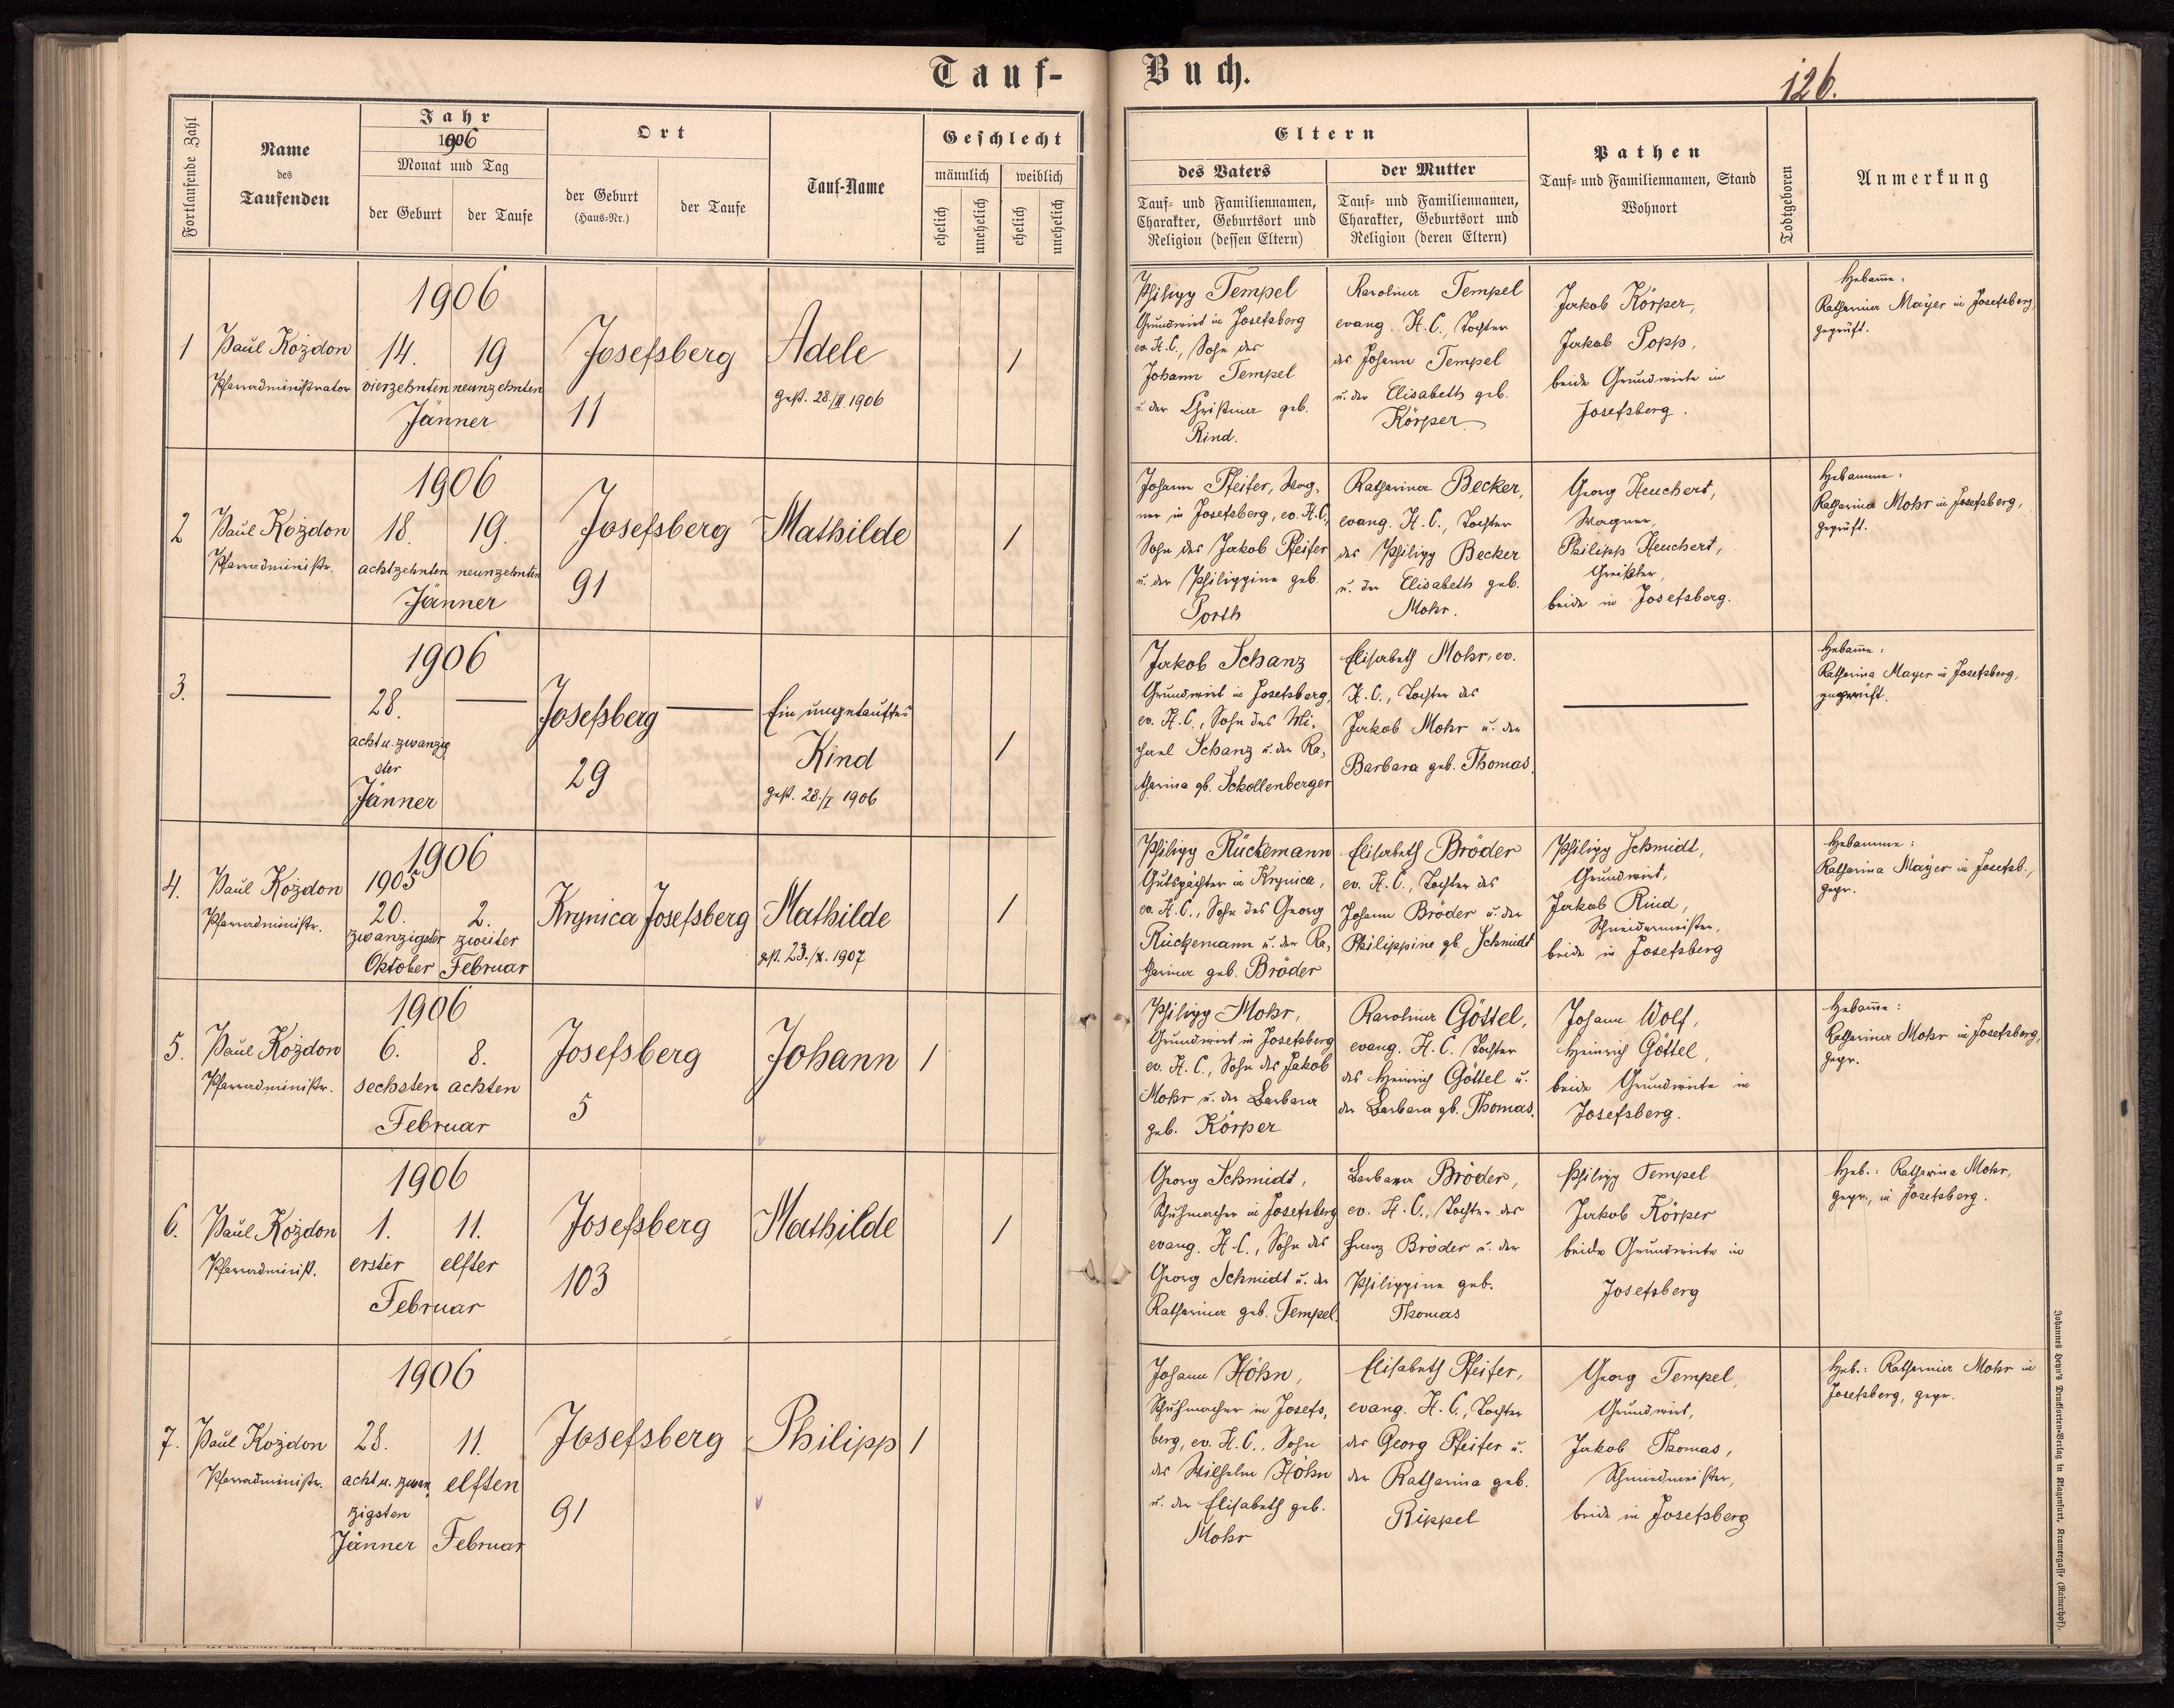 Tauf-
Buch.
126.
Fortlaufende Zahl
Name
des
Taufenden
Jahr
1906
Monat und Tag
der Geburt
der Taufe
Ort
der Geburt
(Haus-Nr.)
der Taufe
Tauf-Name
Geschlecht
männlich
weiblich
ehelich
unehelich
ehelich
unehelich
Eltern
des Vaters
Tauf- und Familiennamen,
Charakter, Geburtsort und
Religion (dessen Eltern)
der Mutter
Tauf- und Familiennamen,
Charakter, Geburtsort und
Religion (deren Eltern)
Pathen
Tauf- und Familiennamen, Stand
Wohnort
Todtgeboren
Anmerkung
1
Paul Kozdon
Pfarradministrator
1906
14. 19
vierzehnten neunzehnten
Jänner
Josefsberg
11
Adele
gest. 28./II 1906
/
Philipp Tempel
Grundwirt in Josefsberg
ev. H. C., Sohn des
Johann Tempel
u. der Christina geb.
Rind.
Karolina Tempel
evang. H. C., Tochter
des Johann Tempel
u. der Elisabeth geb.
Körper
Jakob Körper,
Jakob Popp,
beide Grundwirte in
Josefsberg.
Hebamme:
Katharina Mayer in Josefsberg,
geprüft.
2
Paul Kozdon
Pfarradministr.
1906
18. 19.
achtzehnten neunzehnten
Jänner
Josefsberg
91
Mathilde
/
Johann Pfeifer, Wag-
ner in Josefsberg, ev. H. C.,
Sohn des Jakob Pfeifer
u. der Philippine geb.
Porth
Katharina Becker,
evang. H. C., Tochter
des Philipp Becker
u. der Elisabeth geb.
Mohr.
Georg Heuchert,
Wagner,
Philipp Heuchert,
Greißler,
beide in Josefsberg.
Hebamme:
Katharina Mohr in Josefsberg,
geprüft.
3.
1906
28.
acht u. zwanzig
ster
Jänner
Josefsberg
29
Ein ungetauftes
Kind
gest. 28./I 1906
/
Jakob Schanz
Grundwirt in Josefsberg,
ev. H. C., Sohn des Mi-
chael Schanz u. der Ka-
tharina gb. Schollenberger
Elisabeth Mohr, ev.
H. C., Tochter des
Jakob Mohr u. der
Barbara geb. Thomas.
Hebamme:
Katharina Mayer in Josefsberg,
geprüft.
4.
Paul Kozdon
Pfarradministr.
1906
1905
20. 2.
zwanzigster zweiter
Oktober Februar
Krynica Josefsberg
Mathilde
gest. 23./X. 1907
/
Philipp Rückemann
Gutspächter in Krynica,
ev. H. C., Sohn des Georg
Rückemann u. der Ka-
tharina geb. Bröder
Elisabeth Bröder
ev. H. C., Tochter des
Johann Bröder u. der
Philippine gb. Schmidt
Philipp Schmidt,
Grundwirt,
Jakob Rind,
Schneidermeister,
beide in Josefsberg
Hebamme:
Katharina Mayer in Josefsb.,
gepr.
5.
Paul Kozdon
Pfarradministr.
1906
6. 8.
sechsten achten
Februar
Josefsberg
5
Johann
/
Philipp Mohr,
Grundwirt in Josefsberg
ev. H. C., Sohn des Jakob
Mohr u. der Barbara
geb. Körper
Karolina Göttel,
evang. H. C. Tochter
des Heinrich Göttel u.
der Barbara gb. Thomas.
Johann Wolf,
Heinrich Göttel,
beide Grundwirte in
Josefsberg.
Hebamme:
Katharina Mohr in Josefsberg,
gepr.
6.
Paul Kozdon
Pfarradminist.
1906
1. 11.
erster elfter
Februar
Josefsberg
103
Mathilde
/
Georg Schmidt,
Schuhmacher in Josefsberg
evang. H. C., Sohn des
Georg Schmidt u. der
Katharina geb. Tempel.
Barbara Bröder,
ev. H. C., Tochter des
Franz Bröder u. der
Philippine geb.
Thomas
Philipp Tempel
Jakob Körper
beide Grundwirte in
Josefsberg
Heb.: Katharina Mohr,
gepr., in Josefsberg.
7.
Paul Kozdon
Pfarradministr.
1906
28. 11.
acht u. zwan elften
zigsten
Jänner Februar
Josefsberg
91
Philipp
/
Johann Höhn,
Schuhmacher in Josefs-
berg, ev. H. C., Sohn
des Wilhelm Höhn
u. der Elisabeth geb.
Mohr
Elisabeth Pfeifer,
evang. H. C., Tochter
des Georg Pfeifer u.
der Katharina geb.
Rippel
Georg Tempel,
Grundwirt,
Jakob Thomas,
Schmiedmeister,
beide in Josefsberg
Heb.: Katharina Mohr in
Josefsberg, gepr.
Johannes Heyn's Drucksorten-Verlag in Klagenfurt, Kramergasse (Rainerhof).